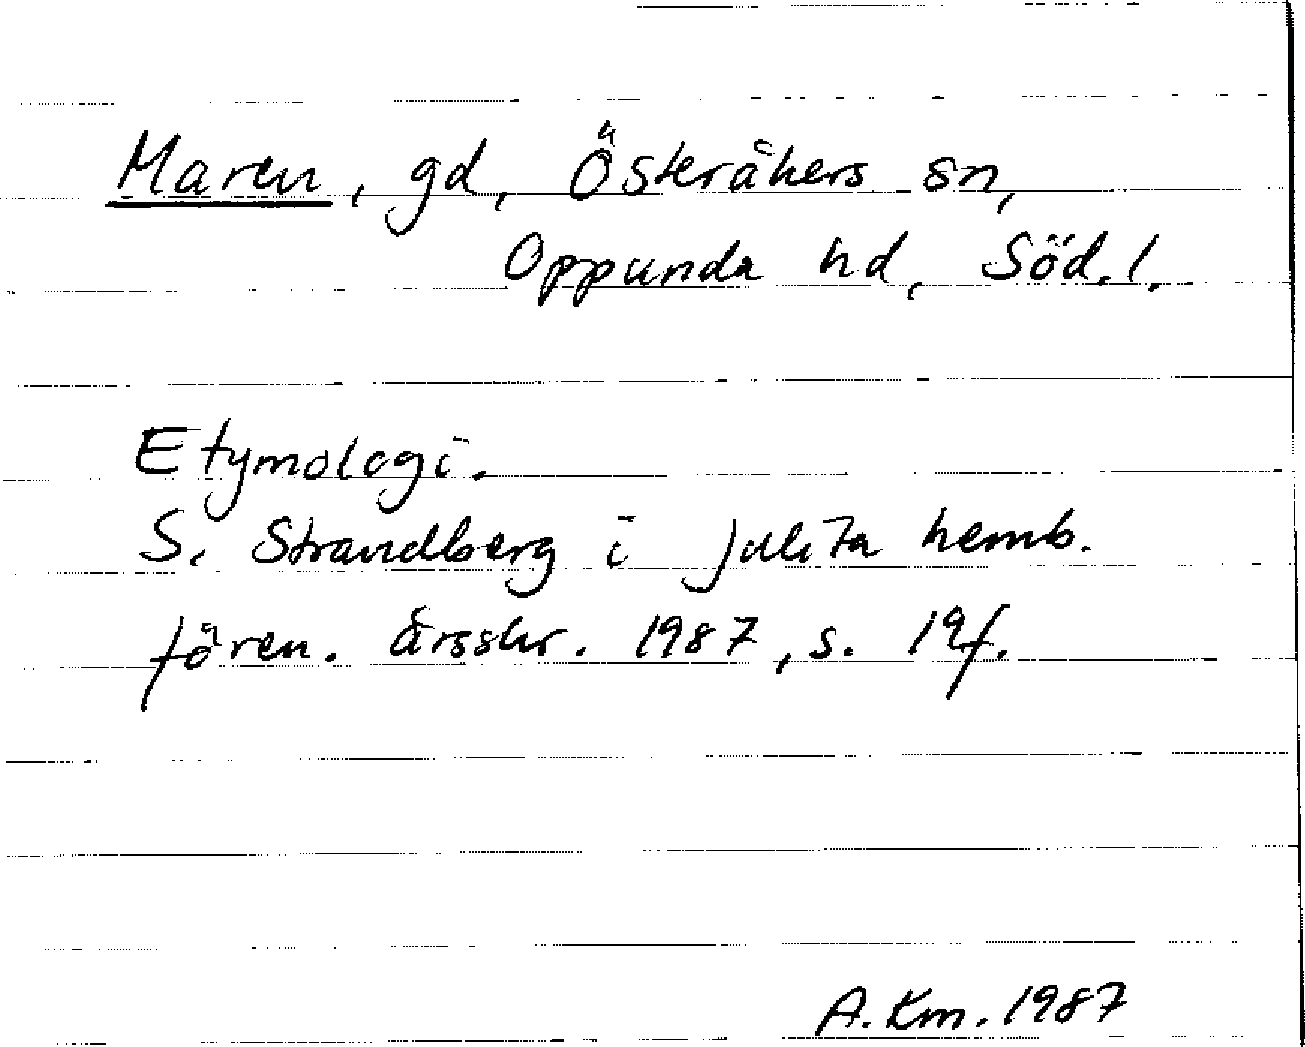 Maren, gd, Österåkers sn,
Oppunda hd, Söd.l.
Etymologi.
S. Strandberg i Julita hemb.
fören. årsskr. 1987, s. 19f.
A.Km. 1987